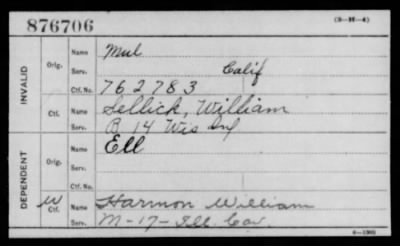 876706 (3-M-4)
INVALID
Orig. Name Mul
Serv. Calif
Ctf. No. 762783
Ctf. Name Sellick, William
Serv. B 14 Wis Inf
DEPENDENT
Orig. Name Ell
Serv.
Ctf. No.
W Ctf. Name Harmon William
Serv. M-17-Ill. Cav.